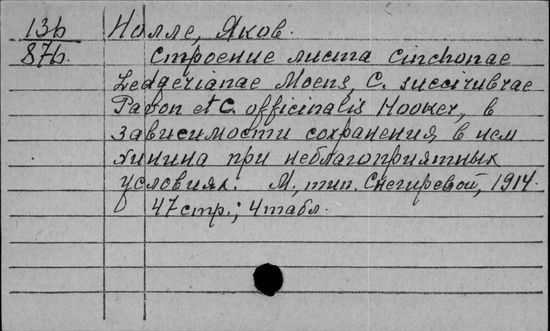 13b Нолле, Яков.
87b. Строение листа Cinchonae
Ledgerianae Moens, C. succirubrae
Pavon et C. officinalis Hooker, в
зависимости сохранения в нем
хинина при неблагоприятных
условиях. М., тип. Снегиревой, 1914.
47 стр.; 4 табл.